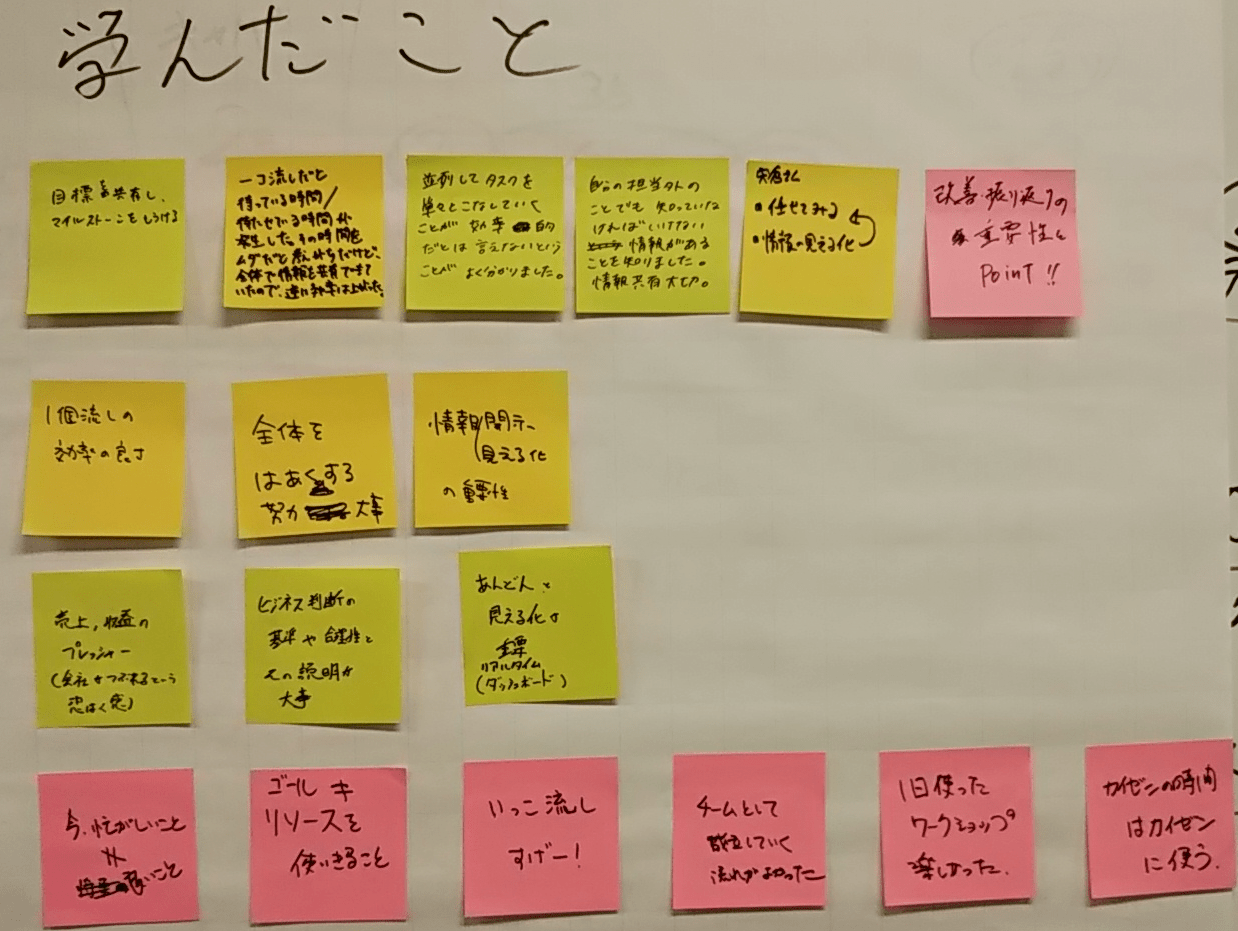 学んだこと
目標を共有し、
マイルストーンをもうける
一コ流しだと
待っている時間/
待たせている時間が
発生した。その時間を
ムダだと思いがちだけど、
全体で情報を共有できて
いたので、逆に効率は上がった。
並列してタスクを
単々とこなしていく
ことが 効率 的
だとは 言えないという
ことが よく分かりました。
自分の担当外の
ことでも 知っていな
ければいけない
情報がある
ことを知りました。
情報共有大切。
矢倉仏
・任せてみる
・情報の見える化
改善・振り返りの
重要性と
Point!!
1個流しの
効率の良さ
全体を
はあくする
努力 大事
情報開示、
見える化
の重要性
売上、収益の
プレッシャー
(会社がつぶれるという
恐はく感)
ビジネス判断の
基準や合理性と
その説明が
大事
あんどん と
見える化は
重要
リアルタイム
(ダッシュボード)
今、忙がしいこと
≠
いこと
ゴール キ
リソースを
使いきること
いっこ流し
すげー!
チームとして
成立していく
流れがよかった
1日使った
ワークショップ
楽しかった.
カイゼンの時間
はカイゼン
に使う.